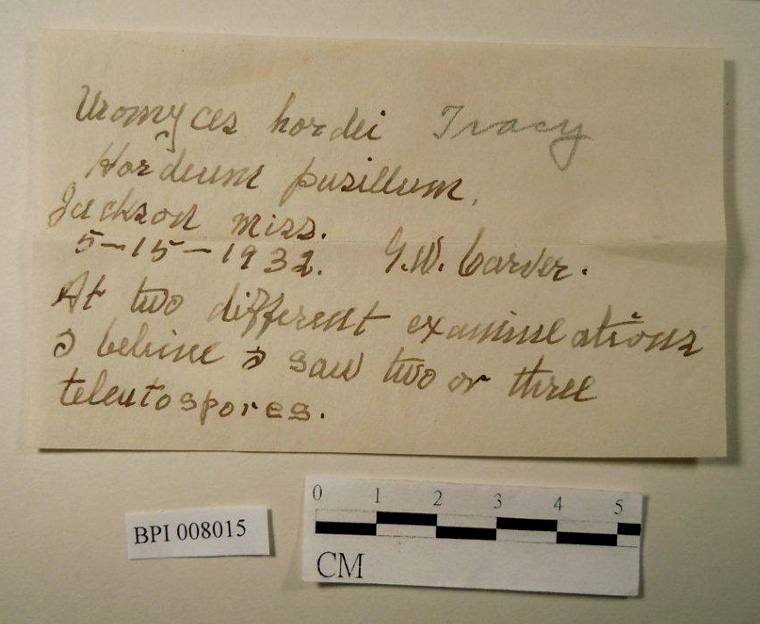 Uromyces hordei Tracy
Hordeum pusillum.
Jackson Miss.
5-15-1932. G.W. Carver.
At two different examineations
I beleive I saw two or three
teleutospores.
BPI 008015
0 1 2 3 4 5
CM